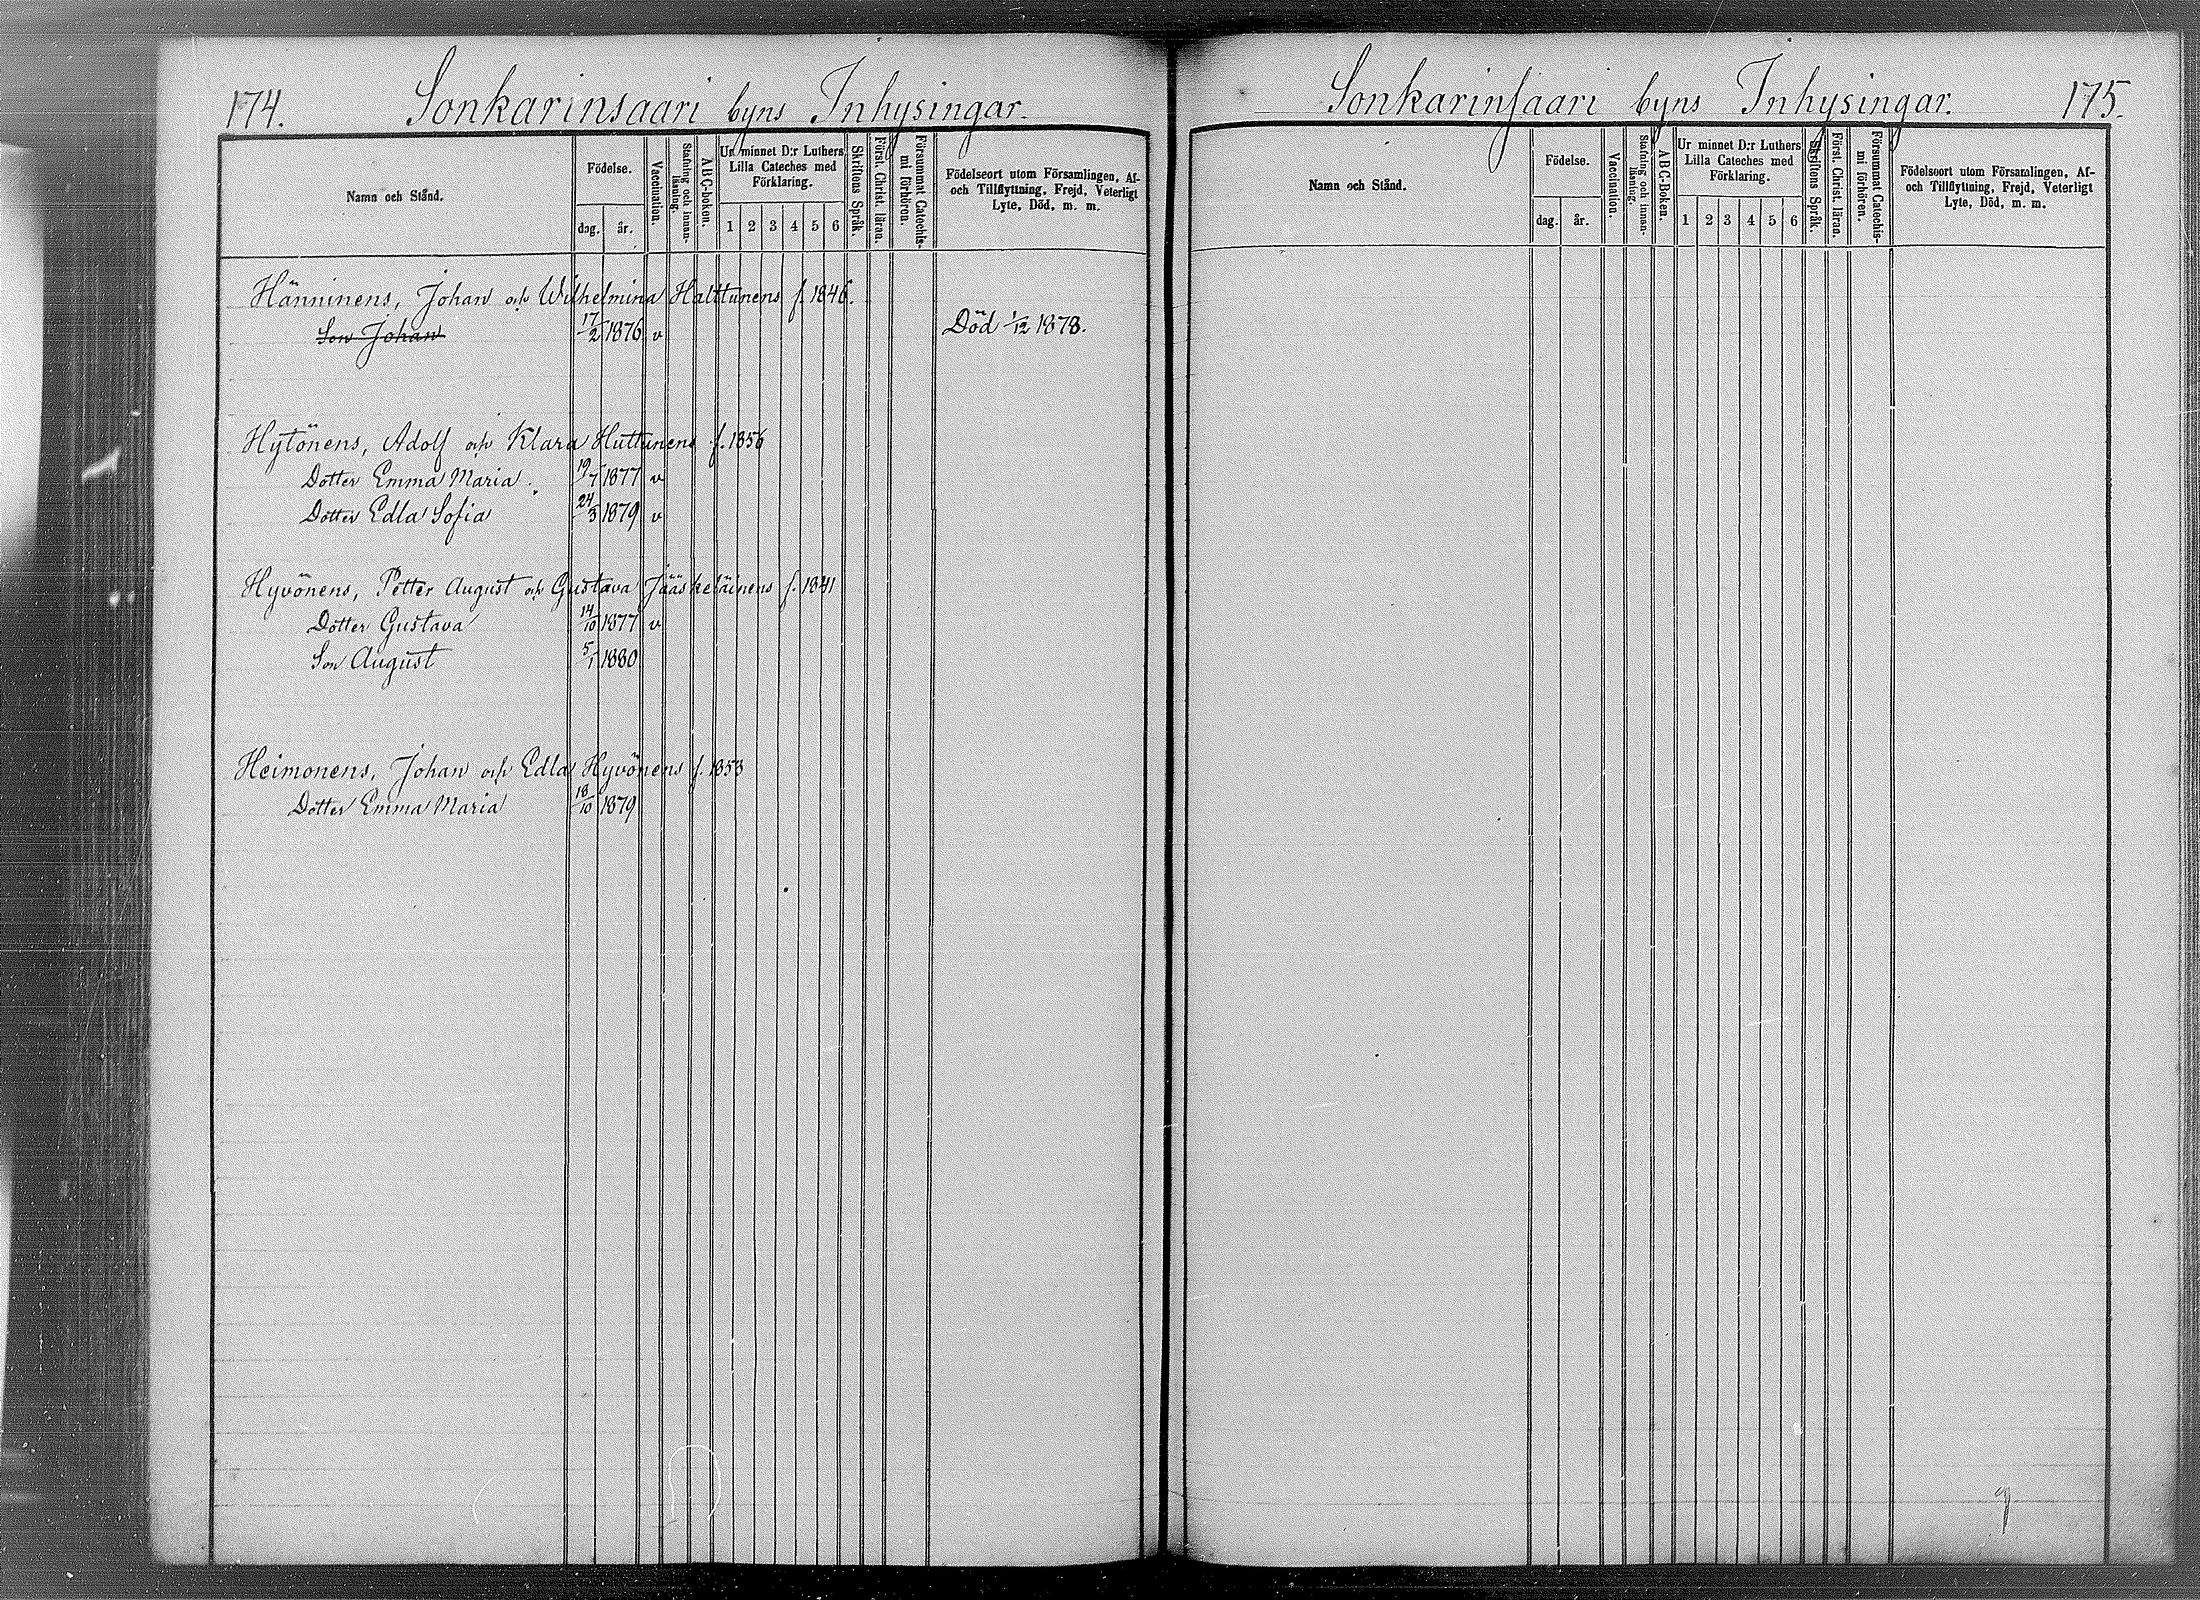 174. Sonkarinsaari byns Inhysingar.
Namn och Stånd.
Födelse.
dag. år.
Vaccination.
Stafning och innanläsning.
A B C-boken.
Ur minnet D:r Luthers
Lilla Cateches med
Förklaring.
1 2 3 4 5 6
Skriftens Språk.
Först. Christ. läran.
Försummat Catechismi förhören.
Födelseort utom Församlingen, Af-
och Tillflyttning, Frejd, Veterligt
Lyte, Död, m. m.
Hänninens, Johan och Wilhelmina Halttunens f. 1846.
Son Johan 17/2 1876 v Död 1/12 1878.
Hytönens, Adolf och Klara Huttunens f. 1856
Dotter Emma Maria 19/7 1877 v
Dotter Edla Sofia 24/3 1879 v
Hyvönens, Petter August och Gustava Jääskeläinens f. 1841
Dotter Gustava 14/10 1877 v
Son August 5/1 1880
Heimonens, Johan och Edla Hyvönens f. 1853
Dotter Emma Maria 18/10 1879
Sonkarinsaari byns Inhysingar. 175.
Namn och Stånd.
Födelse.
dag. år.
Vaccination.
Stafning och innanläsning.
A B C-Boken.
Ur minnet D:r Luthers
Lilla Cateches med
Förklaring.
1 2 3 4 5 6
Skriftens Språk.
Först. Christ. läran.
Försummat Catechismi förhören.
Födelseort utom Församlingen, Af-
och Tillflyttning, Frejd, Veterligt
Lyte, Död, m. m.